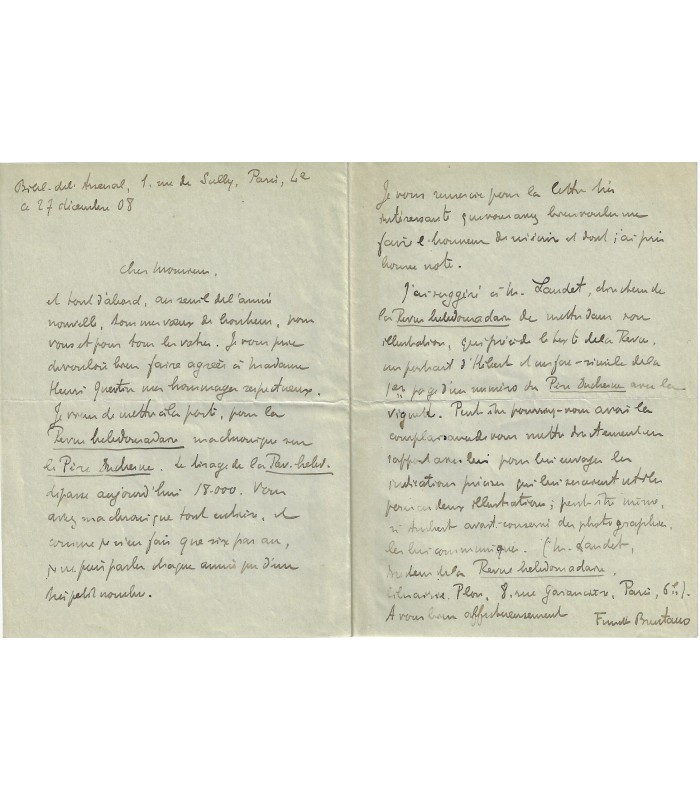 Bibl. de l'Arsenal, 1. rue de Sully, Paris, 4e
ce 27 décembre 08
Cher Monsieur,
et tout d'abord, au seuil de l'année
nouvelle, tous mes vœux de bonheur, pour
vous et pour tous les vôtres. Je vous prie
de vouloir bien faire agréer à Madame
Henri Quentin mes hommages respectueux.
Je viens de mettre à la poste, pour la
Revue hebdomadaire ma chronique sur
le Père Duchesne. Le tirage de la Rev. hebd.
dépasse aujourd'hui 18.000. Vous
avez ma chronique tout entière, et
comme je n'en fais que six par an,
je ne puis parler chaque année que d'un
très petit nombre.
Je vous remercie pour la lettre très
intéressante que vous avez bien voulu me
faire l'honneur de m'écrire et dont j'ai pris
bonne note.
J'ai suggéré à M. Laudet, directeur de
la Revue hebdomadaire de mettre dans son
illustration, qui précède le texte de la Revue,
un portrait d'Hébert et un fac-similé de la
1ere page d'un numéro du Père Duchesne avec la
vignette. Peut-être pourrez-vous avoir la
complaisance de vous mettre directement en
rapport avec lui pour lui envoyer les
indications précises qui lui seraient utiles
pour ces deux illustrations; peut-être même,
si avait conservé des photographies,
les lui communiquer. (M. Laudet,
de la Revue hebdomadaire,
librairie Plon, 8. rue Garancière, Paris, 6e).
A vous bien affectueusement
Funck Brentano